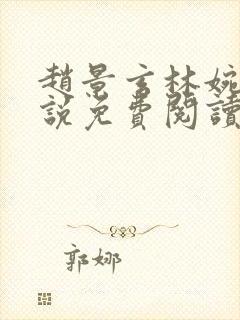 趙景言林婉
說免費閱讀
郭娜